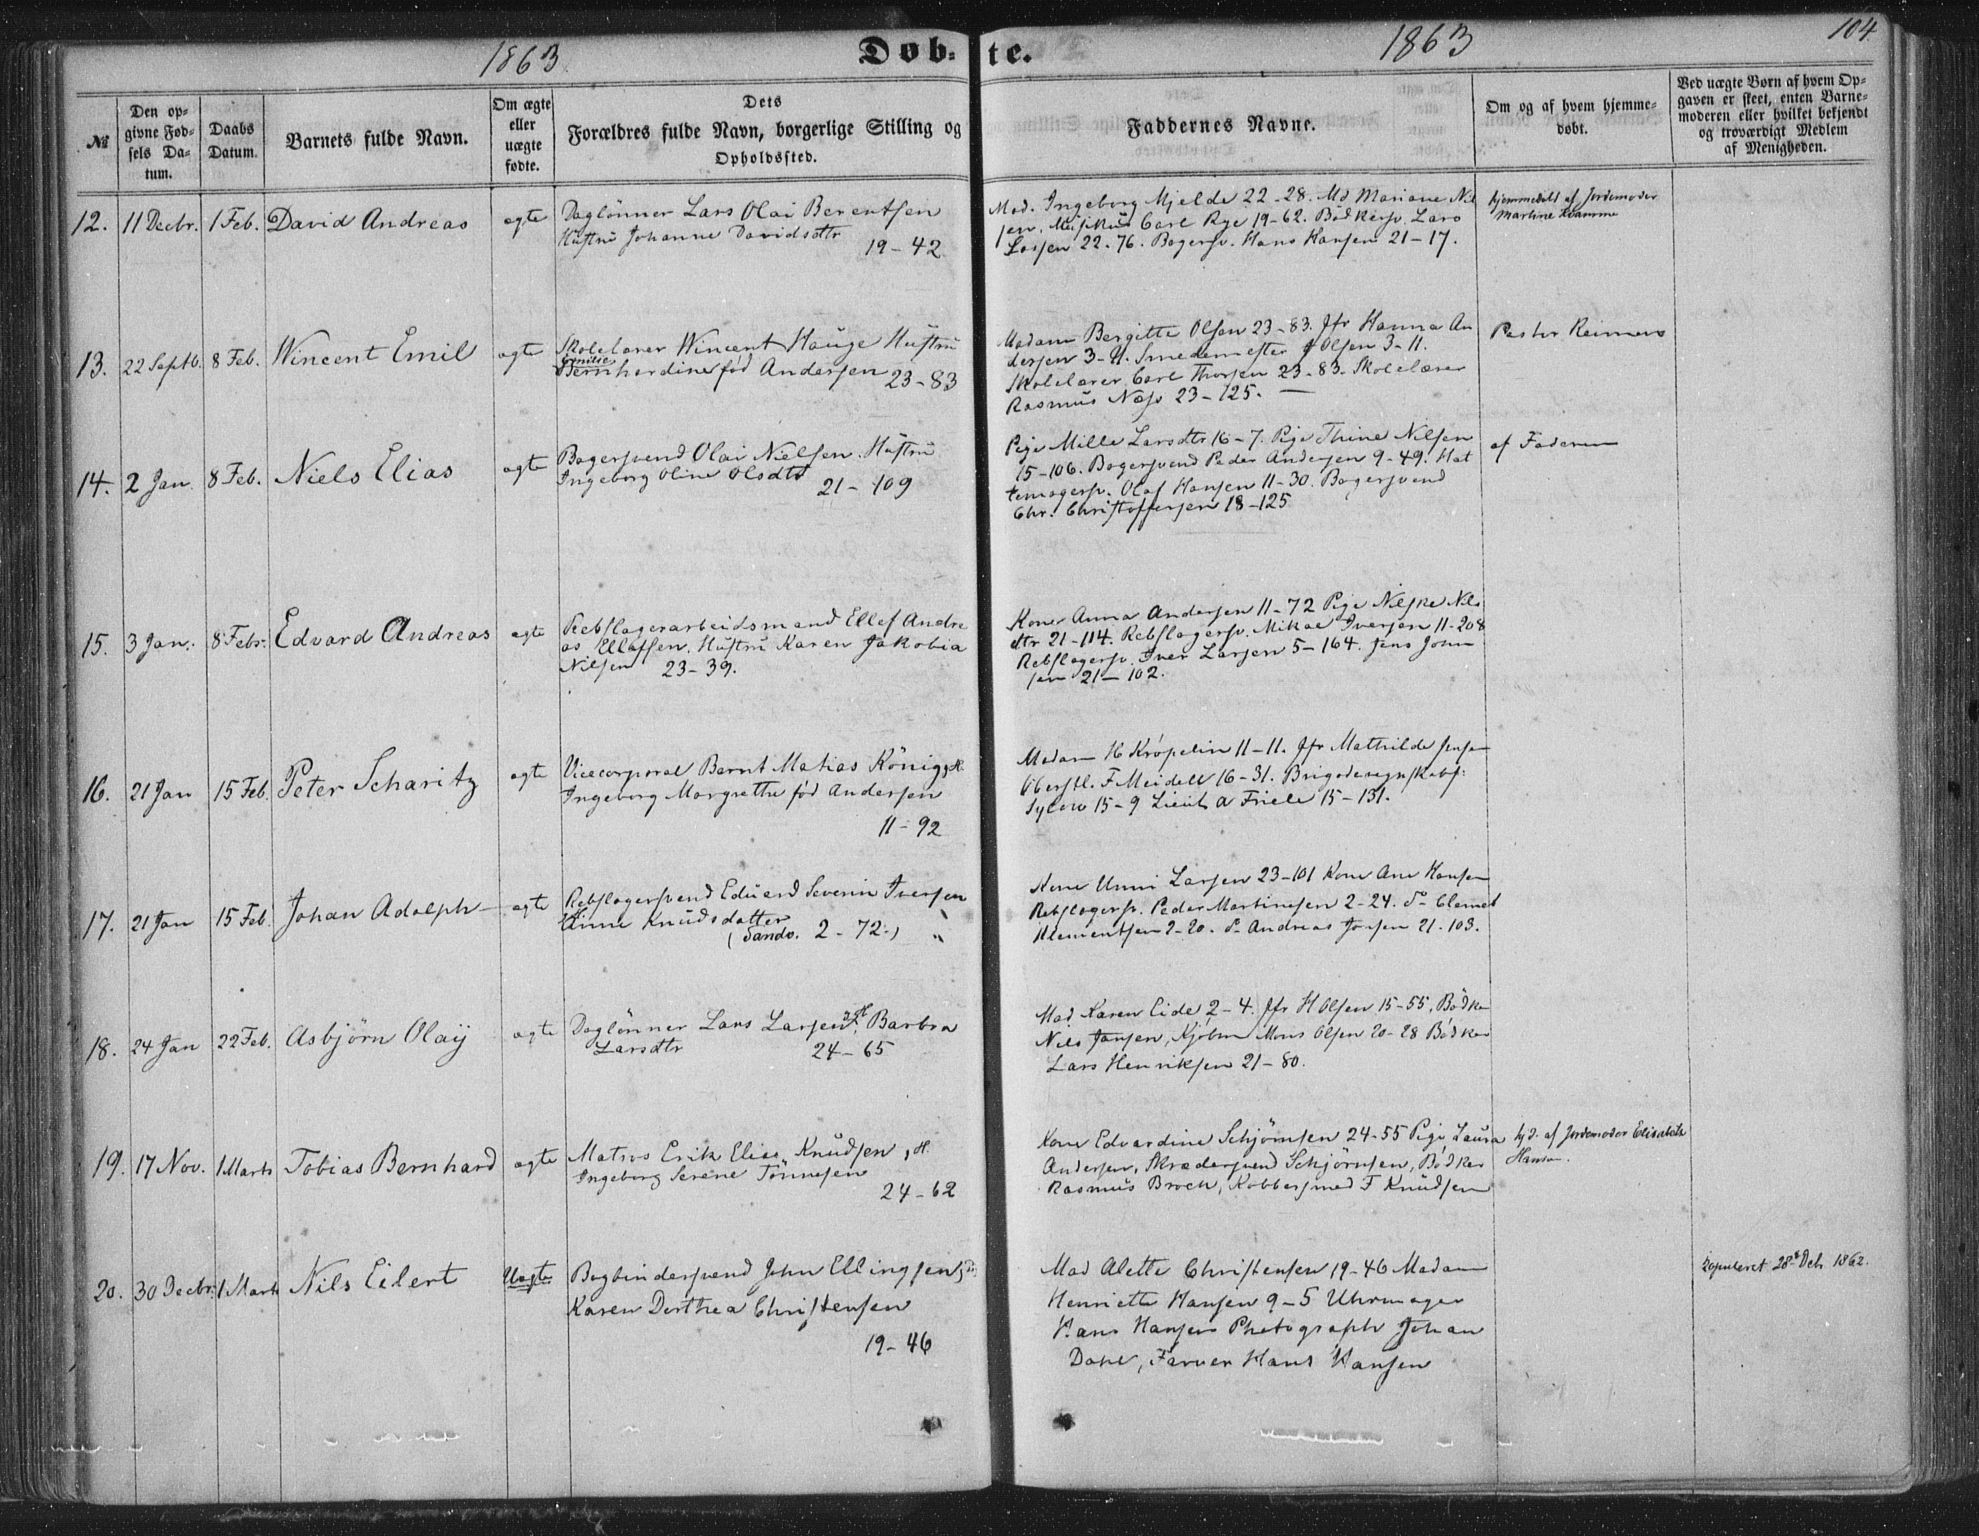 1863
Døb-te.
1863
104
№
Den op-
givne Fød-
sels Da-
tum.
Daabs
Datum.
Barnets fulde Navn.
Om ægte
eller
uægte
fødte.
Dets
Forældres fulde Navn, borgerlige Stilling og
Opholdssted.
Faddernes Navne.
Om og af hvem hjemme-
døbt.
Ved uægte Børn af hvem Op-
gaven er skeet, enten Barne-
moderen eller hvilket bekjendt
og troværdigt Medlem
af Menigheden.
12. 11 Decbr. 1 Feb. David Andreas ægte
Daglønner Lars Olai Berentsen
Hustru Johanne Davidsdtr
19-42
Mad. Ingeborg Mjelde 22-28. Md Mariane Nil
sen. Musikus Carl Rye 19-62. Bødkersv. Lars
Larsen 22-76. Bagersv. Hans Hansen 21-17.
hjemmedøbt af Jordemoder
Martine Kvamme
13. 22 Septb. 8 Feb. Wincent Emil ægte
Skolelærer Wincent Hauge Hustru
Emilie
Bernhardine fød Andersen 23-83
Madam Bergitte Olsen 23-83. Jfr Hanna An
dersen 3-11. Smedemester J Olsen 3-11.
Skolelærer Carl Thorsen 23-83. Skolelærer
Rasmus Næss 23-125.
Pastor Reimers
14. 2 Jan. 8 Feb. Niels Elias ægte
Bagersvend Olai Nielsen. Hustru
Ingeborg Oline Olsdtr
21-109
Pige Mille Larsdtr 16-7. Pige Thine Nilsen
15-106. Bagersvend Peder Andersen 9-49. Hat
temagersv. Olaf Hansen 11-30. Bagersvend
Chr. Christoffersen 18-125
af Faderen
15. 3 Jan. 8 Febr. Edvard Andreas ægte
Rebslagerarbeidsmand Ellef Andre
as Ellefsen. Hustru Karen Jakobia
Nilsen 23-39.
Kone Anna Andersen 11-72 Pige Nilske Nils
dtr 21-114. Rebslagersv. Mikae Iversen 11-208
Rebslagersv. Iver Larsen 5-164. Jens John
sen 21-102.
16. 21 Jan 15 Feb. Peter Scharitz ægte
Vicecorporal Bernt Matias König, H.
Ingeborg Margrethe fød Andersen
11-92
Madam H Krøpelin 11-11. Jfr Mathilde Jensen
Oberstl. F Meidell 16-31. Brigade
Sylow 15-9 Lieut. A Friele 15-131.
17. 21 Jan 15 Feb. Johan Adolph ægte
Rebslagersvend Eduard Severin Iversen
Anne Knudsdatter
(Sandv. 2-72.)
Kone Unni Larsen 23-101 Kone Ane Hansen
Rebslagersv. Peder Martinesen 2-24. do Clemet
Klementsen 2-20. do Andreas 21-103.
18. 24 Jan 22 Feb. Asbjørn Olaij ægte
Daglønner Lars Larsen, H Barbra
Larsdtr 24-65
Mad. Karen Eide 2-4. Jfr H Olsen 15-55, Bødker
Nils Jansen, Kjøbm Mons Olsen 20-28 Bødker
Lars Henriksen 21-80.
19. 17 Nov. 1 Marts Tobias Bernhard ægte
Matros Erik Elias Knudsen, H.
Ingeborg Serene Tönnesen
24-62
Kone Edvardine Schjørnsen 24-55 Pige Laura
Andersen, Skrædersvend Schjørnsen, Bødker
Rasmus Broch, Kobbersmed T Knudsen
hjd. af Jordemoder Elisabeth
Hansen.
20. 30 Decbr. 1 Marts Nils Eilert Uægte
Bogbindersvend John Ellingsen,
Karen Dorthea Christensen
19-46
Mad Alette Christensen 19-46 Madam
Henriette Hansen 9-5 Uhrmager
Hans Hansen Photograph Johan
Dahl, Farver Hans Hansen
Copuleret 28 Dcb 1862.